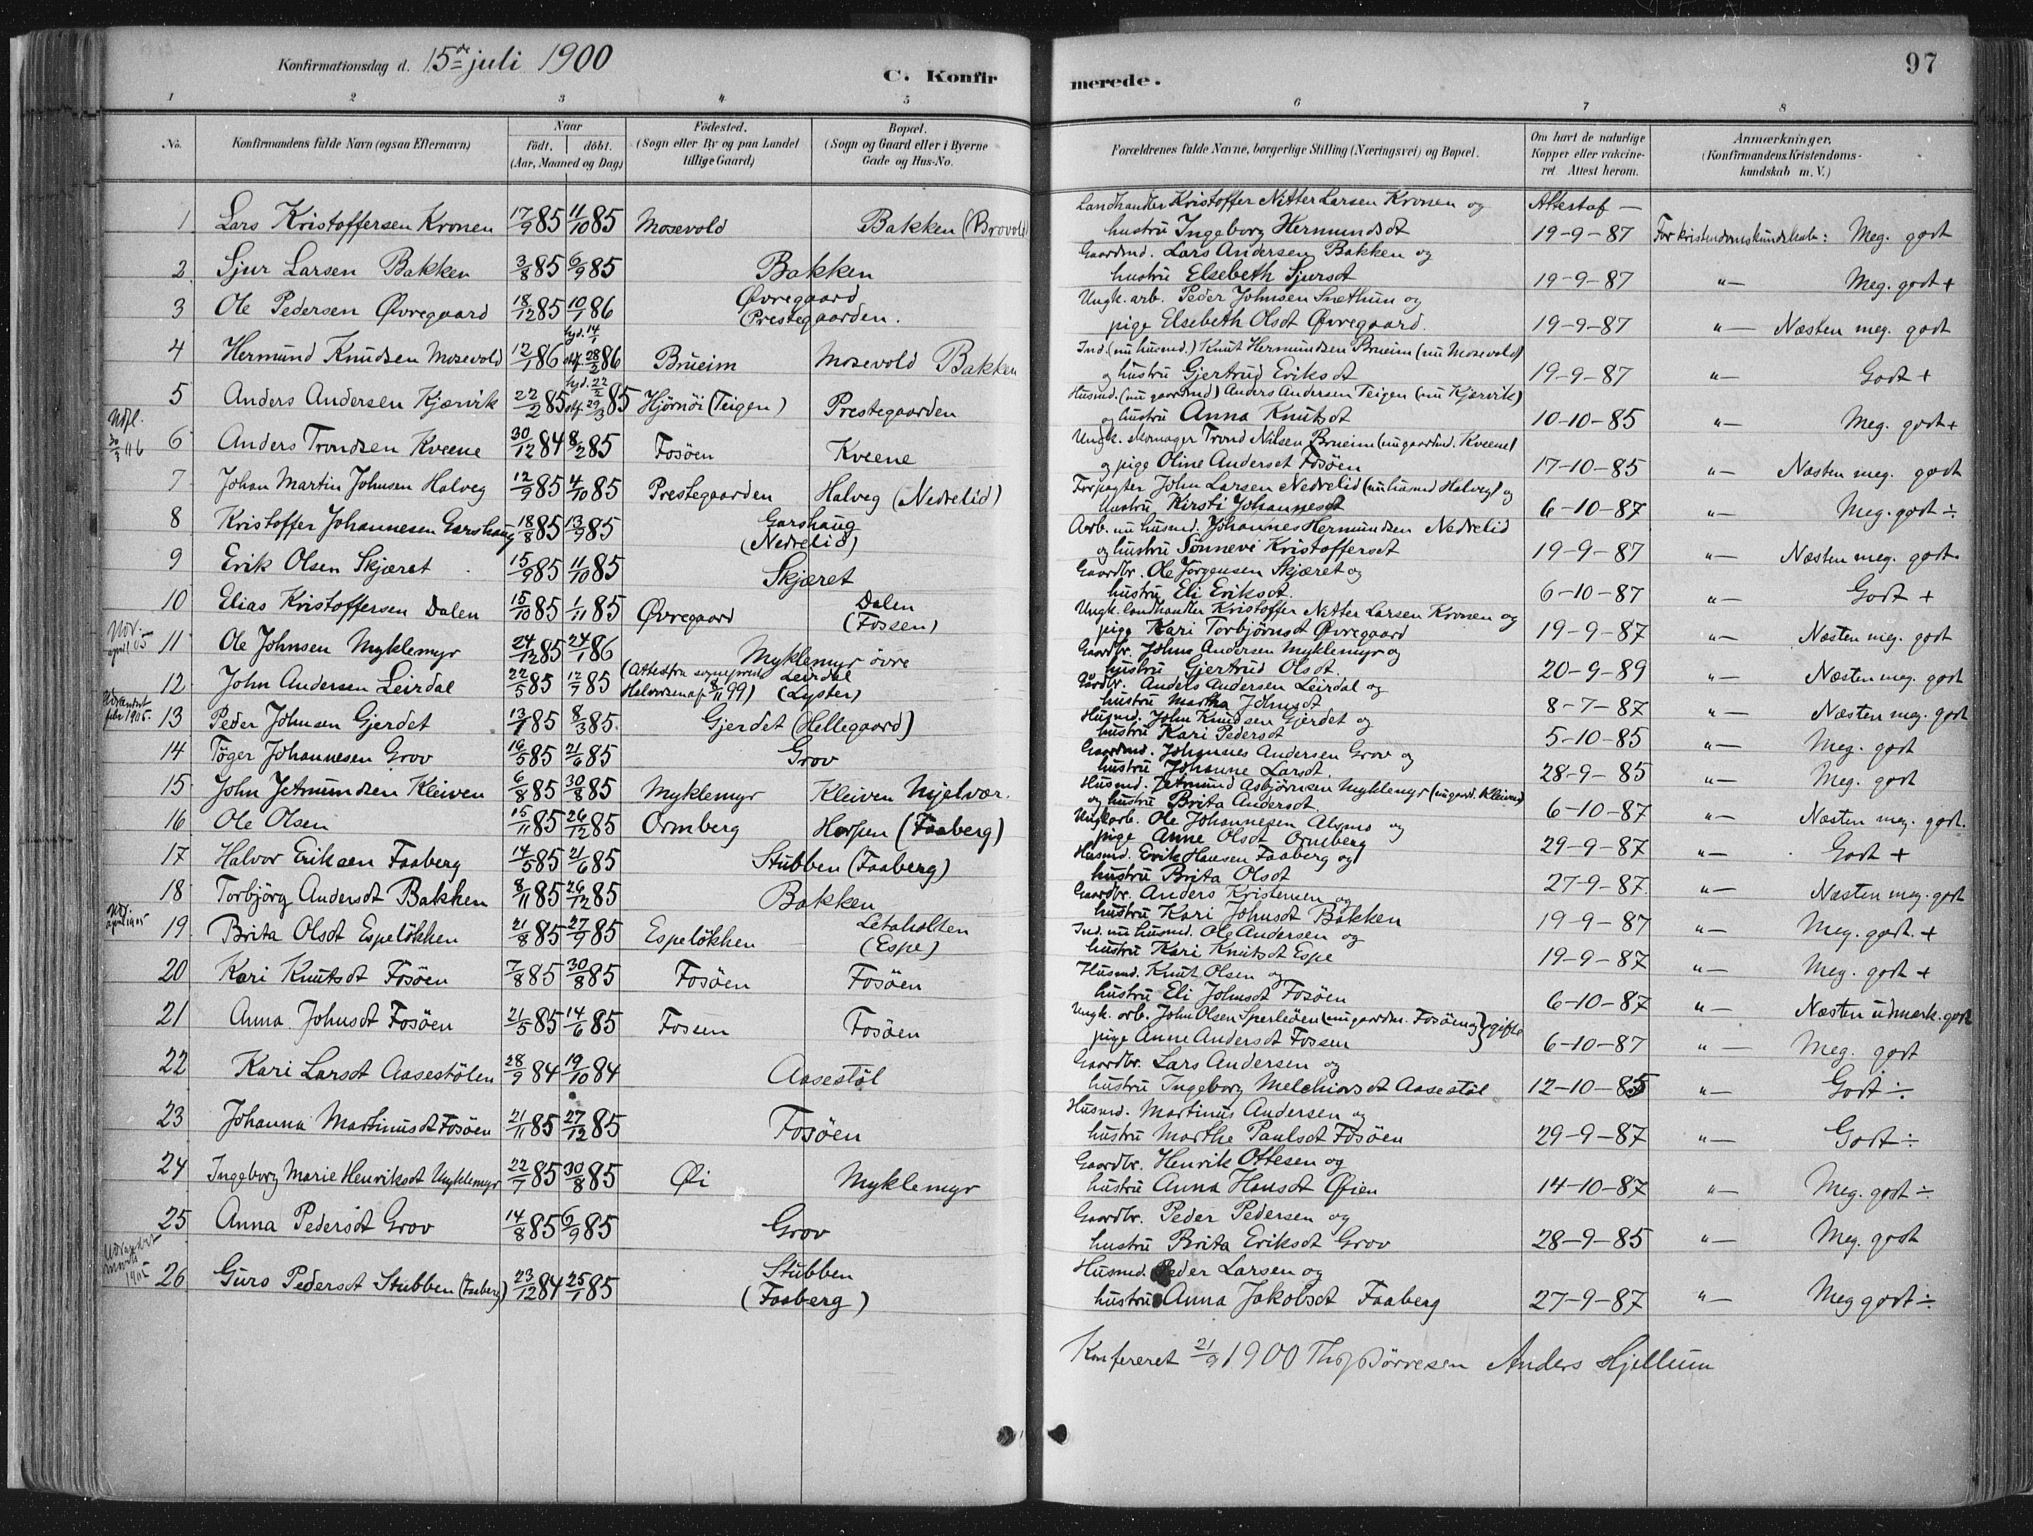 Konfirmationsdag d. 15de juli 1900
C. Konfirmerede.
97
1 2 3 4 5 6 7 8
No.
Konfirmandens fulde Navn (ogsaa Efternavn)
Naar
födt. döbt.
(Aar, Maaned og Dag)
Födested.
(Sogn eller By og paa Landet
tillige Gaard)
Bopæl.
(Sogn og Gaard eller i Byerne
Gade og Hus-No.
Forældrenes fulde Navne, borgerlige Stilling (Næringsvei) og Bopæl.
Om havt de naturlige
Kopper eller vakcine-
ret Attest herom.
Anmærkninger.
(Konfirmandens Kristendoms-
kundskab m. V.)
1 Lars Kristoffersen Kronen 17/9 85 11/10 85 Mosevold Bakken (Brovold) Landhandler Kristoffer Nitter Larsen Kronen og Attestaf —
hustru Ingeborg Hermundsdt 19-9-87 For kristendomskundskab: Meg. godt
2 Sjur Larsen Bakken 3/8 85 6/9 85 Bakken Gaardmd. Lars Andersen Bakken og
hustru Elsebeth Sjursdt 19-9-87 "— Meg. godt +
3 Ole Pedersen Øvregaard 18/12 85 10/1 86 Øvregaard (Prestegaarden. Ungk. arb. Peder Johnsen Snethun og
pige Elsebeth Olsdt Øvregaard. 19-9-87 "— Næsten meg. godt
4 Hermund Knudsen Mosevold 12/1 86 hjd. 14/1 stf. 28/2 86 Brueim Mosevold Bakken Ind. (nu husmd.) Knut Hermundsen Brueim (nu Mosevold)
og hustru Gjertrud Eriksdt 19-9-87 "— Godt +
5 Anders Andersen Kjærvik 22/2 85 hjd. 22/2 stf. 29/3 85 Hjörnöi (Teigen) Prestegaarden Husmd. (nu gaardmd) Anders Andersen Teigen (nu Kjærvik)
og hustru Anna Knutsdt 10-10-85 "— Meg. godt +
Udfl. 30/3 116
6 Anders Trondsen Kveene 30/12 84 8/2 85 Fosöen Kveene Ungk. skomager Trond Nilsen Brueim (nu gaardmd. Kveene)
og pige Oline Andersdt Fosöen 17-10-85 "— Næsten meg. godt
7 Johan Martin Johnsen Halveg 12/9 85 4/10 85 Prestegaarden Halveg (Nedrelid) Forpagter John Larsen Nedrelid (nu husmd Halveg) og
hustru Kirsti Johannesdt 6-10-87 "— Meg. godt ÷
8 Kristoffer Johannesen Garshaug 18/8 85 13/9 85 Garshaug (Nedrelid) Arb. nu husmd. Johannes Hermundsen Nedrelid
og hustru Sönnevi Kristoffersdt 19-9-87 "— Næsten meg. godt.
9 Erik Olsen Skjæret 15/9 85 11/10 85 Skjæret Gaardbr. Ole Jörgensen Skjæret og
hustru Eli Eriksdt. 6-10-87 "— Godt +
10 Elias Kristoffersen Dalen 15/10 85 1/11 85 Øvregaard Dalen (Fossen) Ungk. landhandler Kristoffer Nitter Larsen Kronen og
pige Kari Torbjörnsdt Øvregaard 19-9-87 "— Næsten meg. godt
Udv. april 05
11 Ole Johnsen Myklemyr 24/12 85 24/1 86 Myklemyr övre Gaardbr. Johns Andersen Myklemyr og
hustru Gjertrud Olsdt. 20-9-89 "— Næsten meg. godt
12 John Andersen Leirdal 22/5 85 12/7 85 (Attest fra sogneprest Halvorsen af 8/11 99) Leirdal (Lyster) Gårdbr. Anders Andersen Leirdal og
hustru Martha Johnsdt 8-7-87 "— Næsten meg. godt
Udvandret febr 1905.
13 Peder Johnsen Gjerdet 13/1 85 8/3 85. Gjerdet (Hellegaard) Husmd. John Knudsen Gjerdet og
hustru Kari Pedersdt 5-10-85 "— Meg. godt
14 Töger Johannesen Grov 16/5 85 21/6 85 Grov Gaardmd. Johannes Andersen Grov og
hustru Johanne Larsdt. 28-9-85 "— Meg. godt
15 John Jetmundsen Kleiven 6/8 85 30/8 85 Myklemyr Kleiven Mjelvær. Husmd. Jetmund Asbjörnsen Myklemyr (nu gaard. Kleiven)
og hustru Brita Andersdt. 6-10-87 "— Næsten meg. godt.
16 Ole Olsen 15/11 85 26/12 85 Ormberg Horpen (Faaberg) Ungk arb. Ole Johannesen Alsmo og
pige Anne Olsdt Ormberg 29-9-87 "— Godt +
17 Halvor Eriksen Faaberg 14/5 85 21/6 85 Stubben (Faaberg) Husmd. Erik Hansen Faaberg og
hustru Brita Olsdt 27-9-87 "— Næsten meg. godt
18 Torbjörg Andersdt Bakken 8/11 85 26/12 85 Bakken Gaardbr. Anders Kristensen og
hustru Kari Johnsdt Bakken 19-9-87 "— Meg. godt. +
Udv. april 1905
19 Brita Olsdt Espelökken 21/8 85 27/9 85 Espelökken Letaholten (Espe) Ind. nu husmd. Ole Andersen og
hustru Kari Knutsdt Espe 19-9-87 "— Meg. godt +
20 Kari Knutsdt Fosöen 7/8 85 30/8 85 Fosöen Fosöen Husmd. Knut Olsen og
hustru Eli Johnsdt Fosöen 6-10-87 "— Næsten udmærk. godt
21 Anna Johnsdt Fosöen 21/5 85 14/6 85 Fossen Fosöen Ungk. arb. John Olsen Sperleöen (nu gaardm. Fosöen og } gifte
pige Anne Andersdt Fossen 6-10-87 "— Meg. godt
22 Kari Larsdt Aasestölen 28/9 84 19/10 84 Aasestöl Gaardbr. Lars Andersen og
hustru Ingeborg Melchiorsdt Aasestöl 12-10-85 "— Godt ÷
23 Johanna Martinusdt Fosöen 21/11 85 27/12 85 Fosöen Husmd. Martinus Andersen og
hustru Marthe Paulsdt Fosöen 29-9-87 "— Godt ÷
24 Ingeborg Marie Henriksdt Myklemyr 22/7 85 30/8 85 Øi Myklemyr Gaardbr. Henrik Ottesen og
hustru Anna Hansdt Øien 14-10-87 "— Meg. godt ÷
25 Anna Pedersdt Grov 14/8 85 6/9 85 Grov Gaardbr. Peder Pedersen og
hustru Brita Eriksdt Grov 28-9-85 "— Meg. godt
Udvandret 1905
26 Guro Pedersdt Stubben (Faaberg) 23/12 84 25/1 85 Stubben (Faaberg) Husmd. Peder Larsen og
hustru Anna Jakobsdt Faaberg 27-9-87 "— Meg godt ÷
Konfereret 21/9 1900 Anders Hjellum